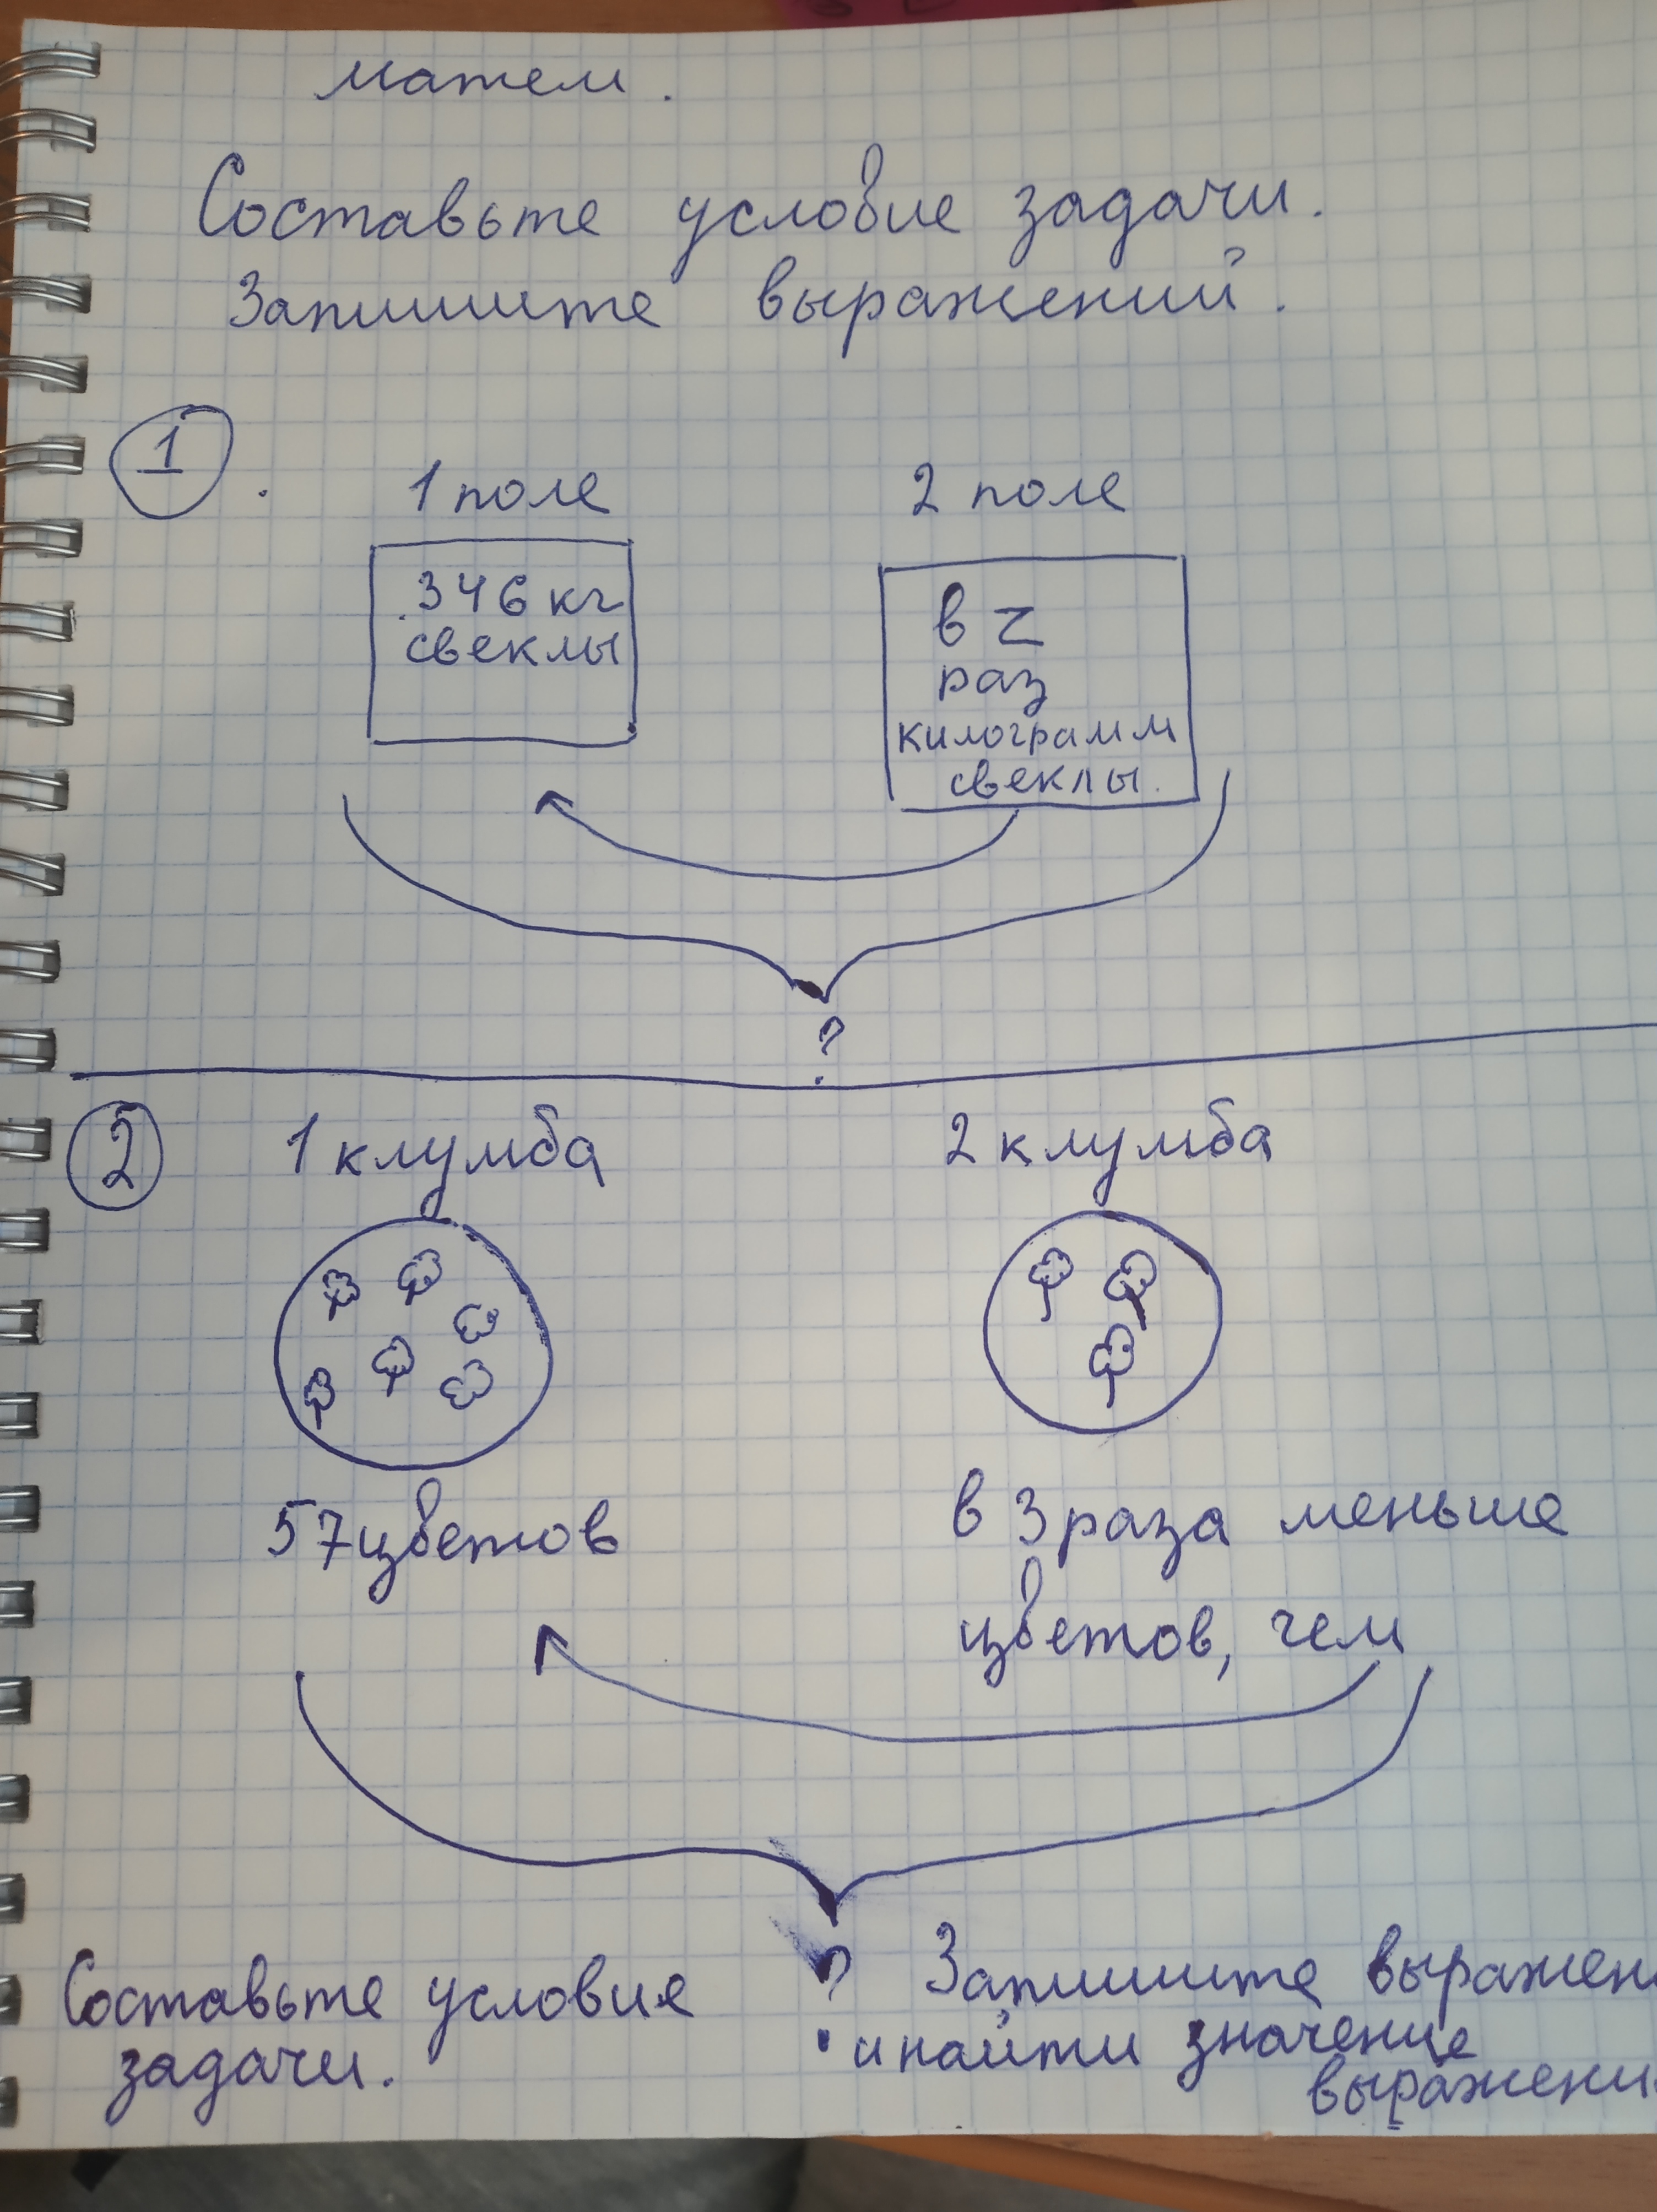 матем.
Составьте условие задачи.
Запишите выражений.
1.
1 поле
2 поле
346 кг
свеклы
в
раз
килограмм
свеклы.
?
2
1 клумба
2 клумба
57 цветов
в 3 раза меньше
цветов, чем
?
Составьте условие
задачи.
Запишите выражен
и найти значение
выражени